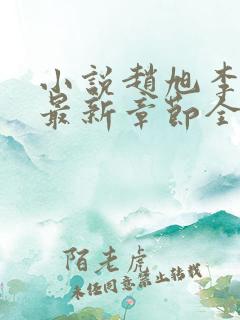 小說趙旭李
最新章節全
陌老虎
未经同意禁止转载